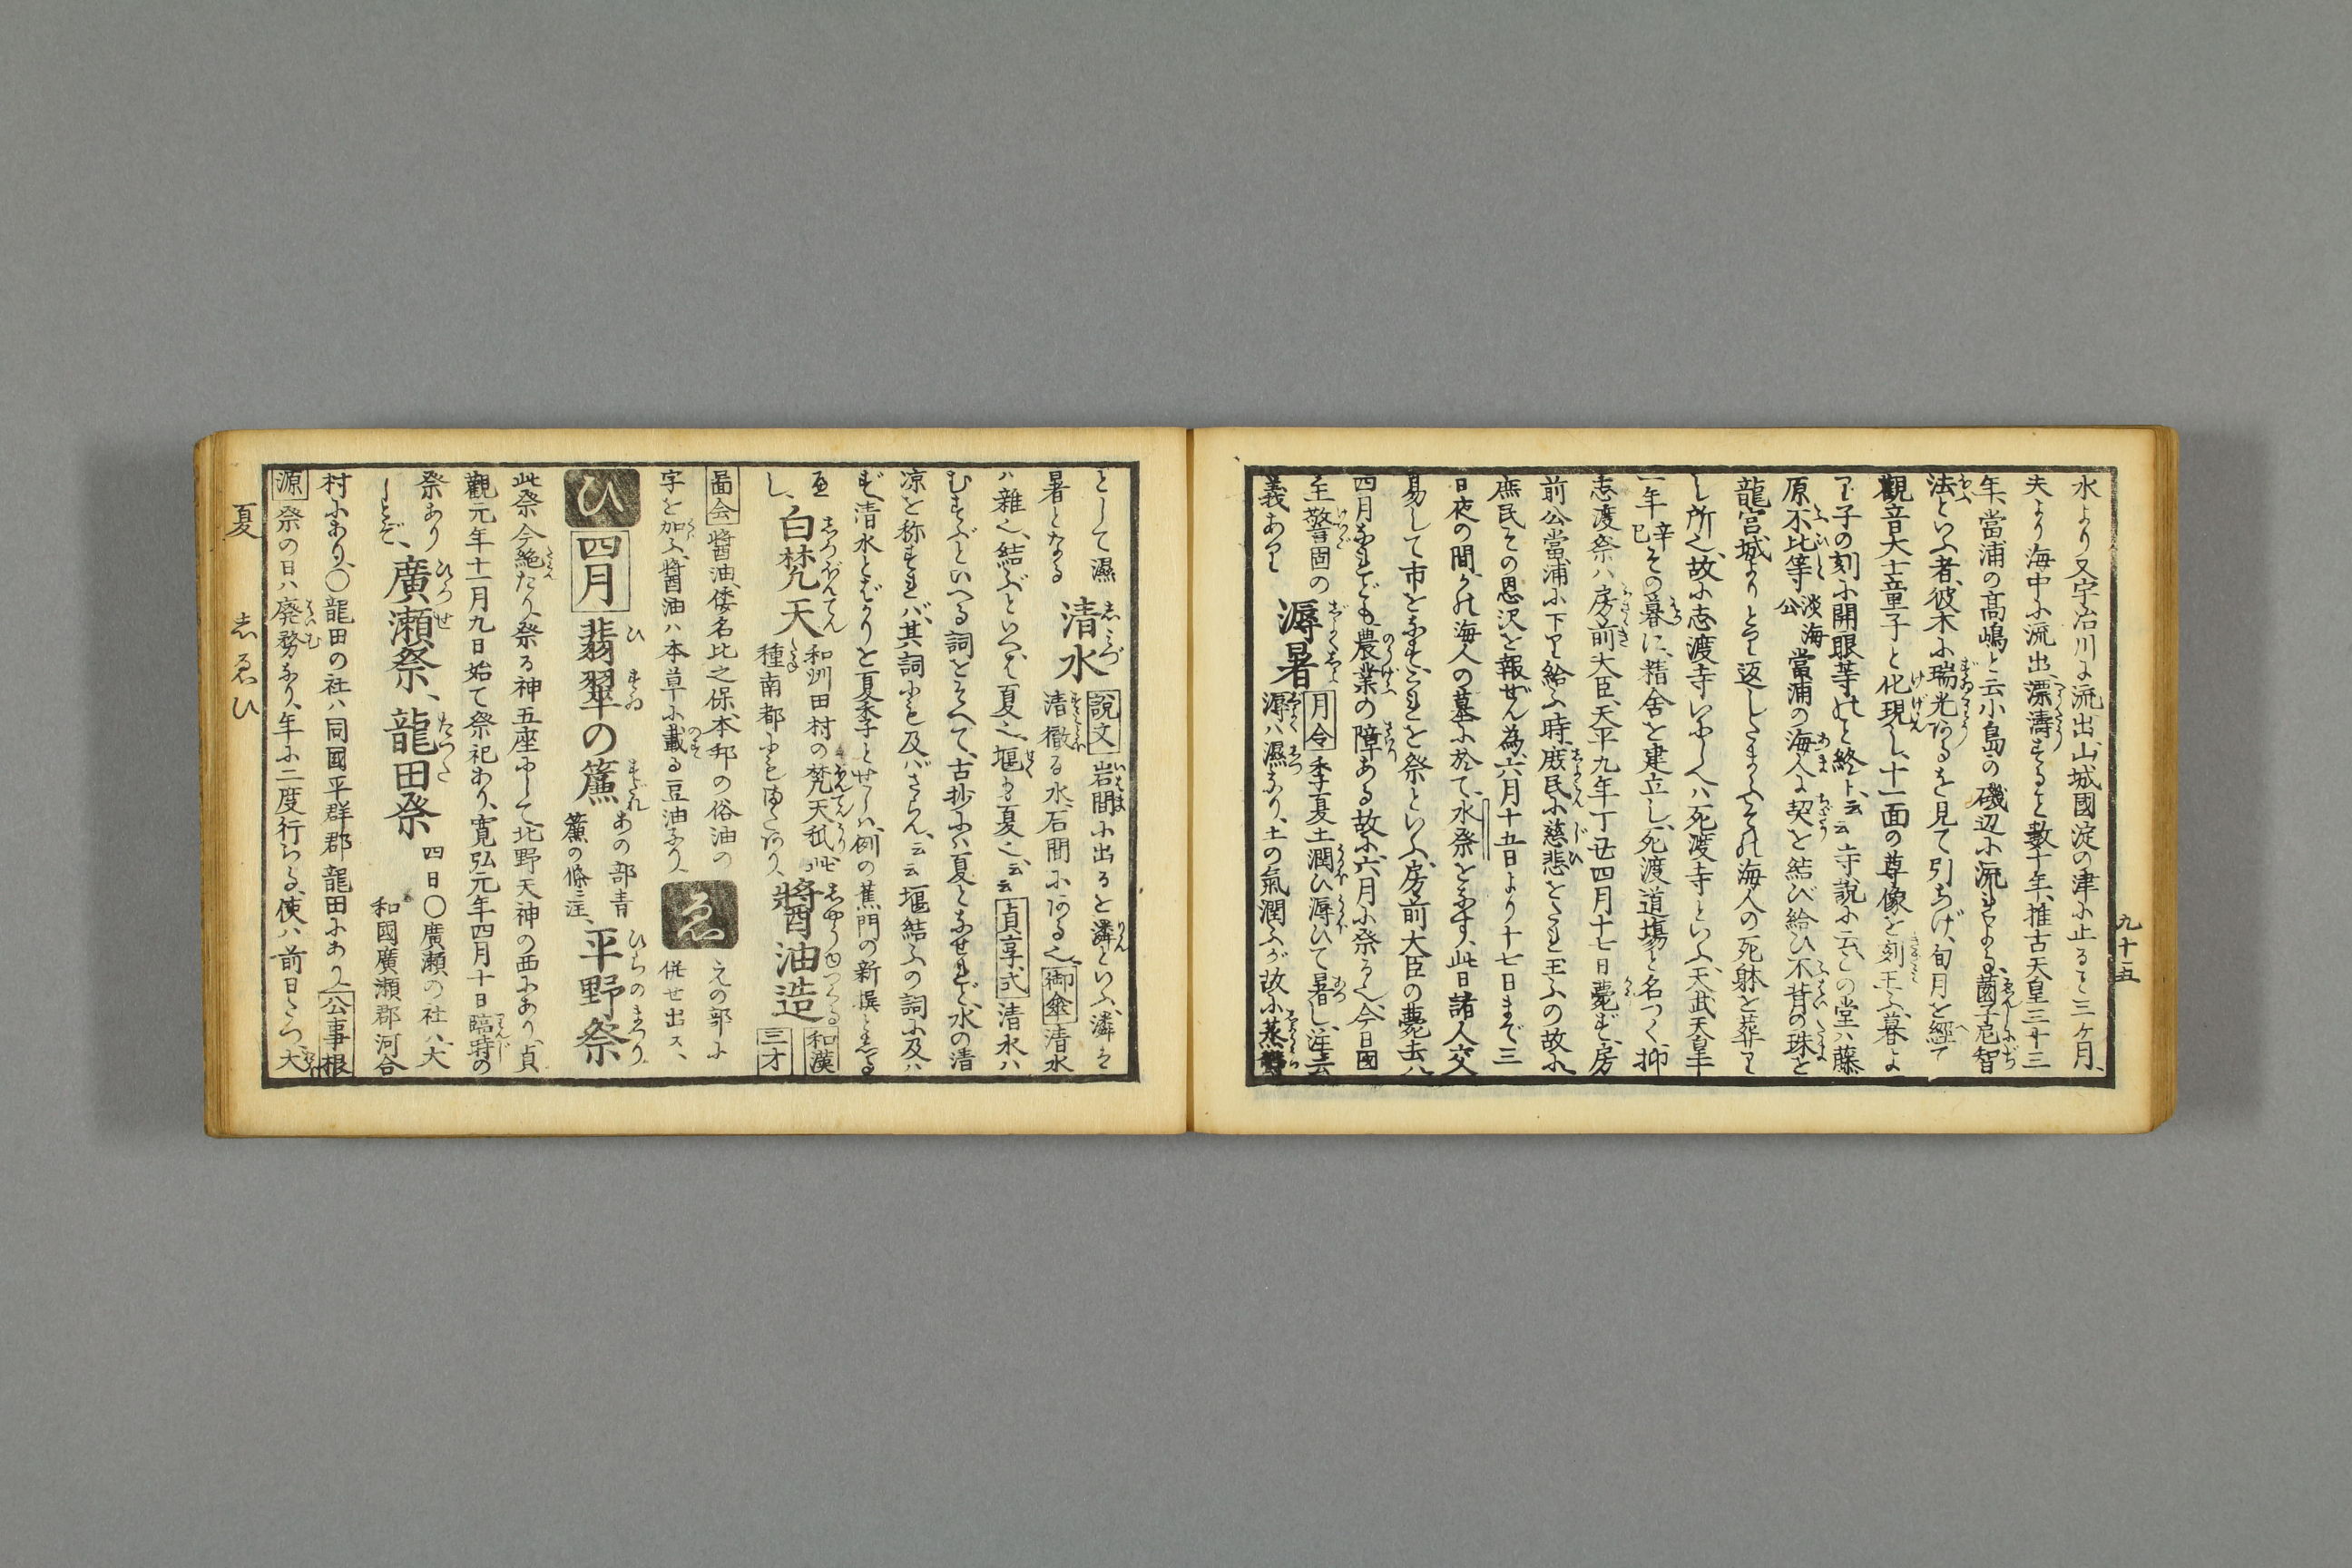 九十五
水より又宇治川に流出、山城國淀の津に止ると三ケ月、
夫より海中に流出、漂濤すると数十年、推古天皇三十三
年、當浦の高嶋と云小島の磯辺に流れよる、薗子尼智
法といふ者、彼木に瑞光あるを見て引あげ、旬月を經て
觀音大士童子と化現し、十一面の尊像を刻玉ふ、暮よ
り子の刻に開眼等れと終ト、云云寺説に云、この堂ハ藤
原不比等淡海公當浦の海人に契を結び給ひ不背の珠を
龍宮城よりとり返したまふ、その海人の死躰を葬り
し所之、故に志渡寺いにしへハ死渡寺といふ、天武天皇十
一年辛巳その暮に、精舎を建立し、死渡道場と名つく、抑
志渡祭ハ房前大臣、天平九年丁丑四月十七日薨ず、房
前公當浦に下り給ふ時、庶民に慈悲をたれ玉ふの故に
庶民その恩沢を報ぜん為、六月十五日より十七日まで三
日夜の間かの海人の墓に於て、水祭をなす、此日諸人交
易して市をなす、これを祭といふ、房前大臣の薨去ハ
四月なれども農業の障ある故に六月に祭る之、今日國
主警固の 溽暑 月令 季夏土潤ひ溽ひて暑し、注云
義あり 溽ハ濕なり、土の氣潤ふが故に蒸鬱
として濕 清水 説文 岩間に出るを潾といふ、潾は
暑となる 清徹る水、石間にある之 御傘 清水
ハ雜之、結ぶといへば夏之、堰も夏之、云云 貞享式 清水ハ
むすぶといへる詞をそへて、古抄にハ夏となせれど、水の清
凉を称すれバ、其詞にも及バざらん、云云堰結ふの詞に及ハ
ず、清水とばかりを夏季とせしハ、例の蕉門の新撰と
し、白梵天 和州田村の梵天瓜 醤油造 和漢三才
種南都にも
啚会 醤油、倭名比之保、本邦の俗油の ゑ えの部に
字を加ふ、醤油ハ本草に載る豆油なり、 併せ出ス、
ひ 四月 翡翠の簾 あの部青簾の條ニ注、 平野祭
此祭今絶たり、祭る神五座にして、北野天神の西にあり、貞
觀元年十一月九日始て祭祀あり、寛弘元年四月十日臨時の
祭あり 廣瀬祭、龍田祭 四日〇廣瀬の社ハ、大
しとぞ、 和國廣瀬郡河合
村にあり、〇龍田の社ハ同國平群郡龍田にあり、 公事根
源 祭の日ハ廃務なり、年に二度行らる、使ハ前日たつ、大
夏 しゑひ